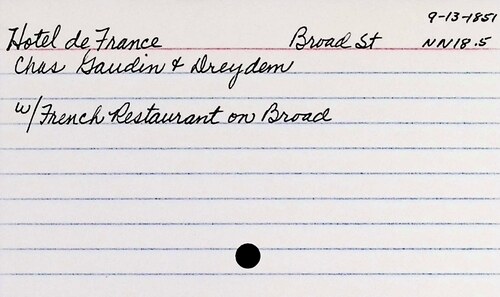 9-13-1851
Hotel de France Broad St NN18.5
Chas Gaudin & Dreydem
w/French Restaurant on Broad